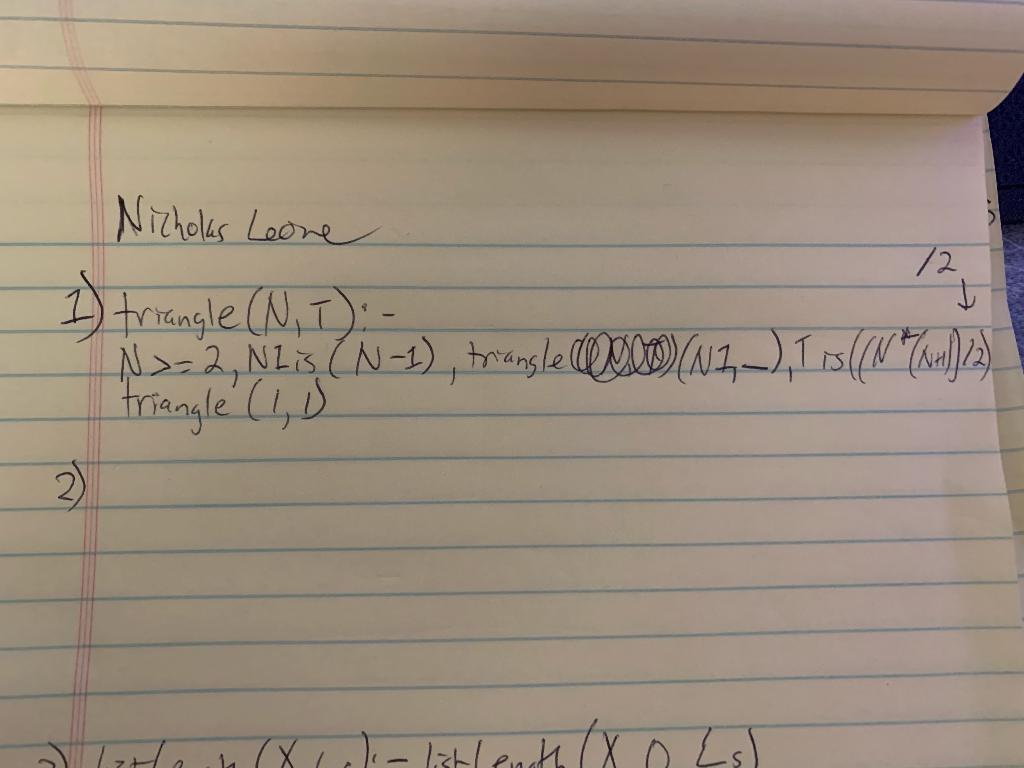 Nicholas Leone
/2
↓
1) triangle(N,T):-
N>=2, N1 is (N-1), triangle (N1,_), T is ((N*(N+1))/2)
triangle (1,1)
2)
:- listlength (X, 0, Ls)